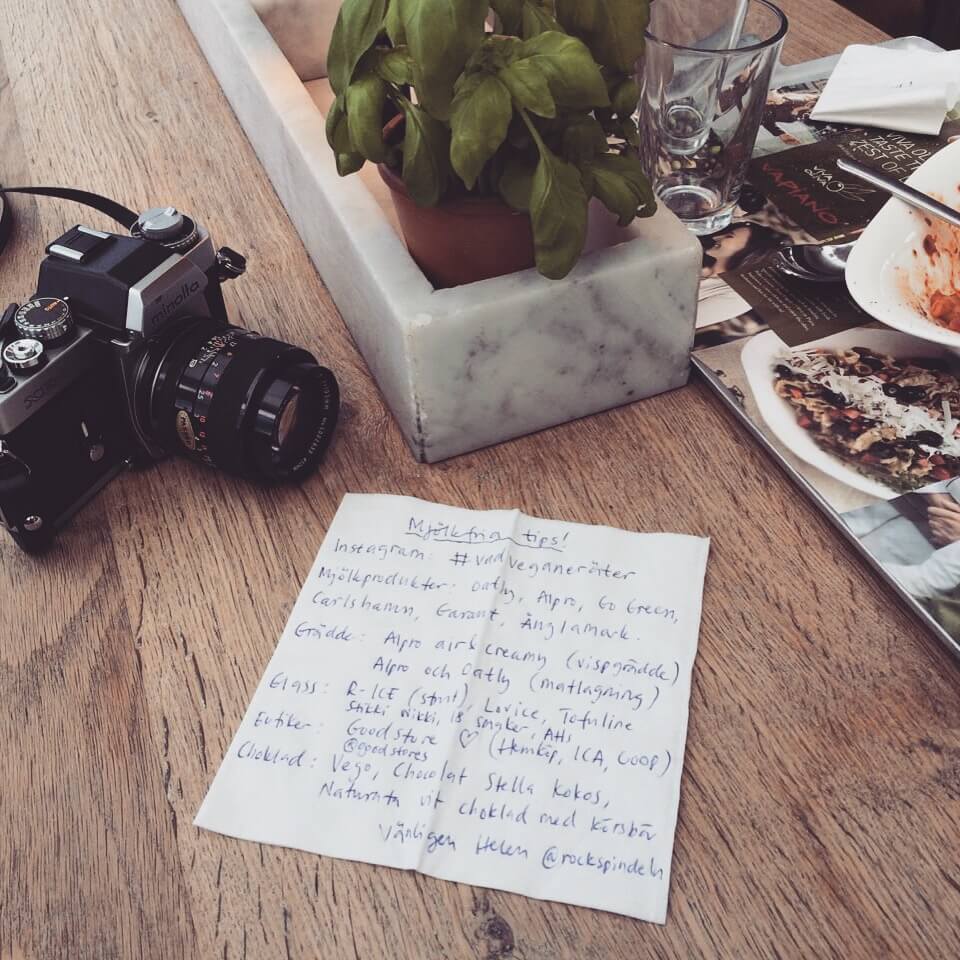 minolta
VIVA OL
TASTE T
ZEST OF
VIVA
OLIVA
VAPIANO
Mjölkfria tips!
Instagram: #vadveganeräter
Mjölkprodukter: Oatly, Alpro, Go Green,
Carlshamn, Garant, Änglamark.
Grädde: Alpro airs creamy (vispgrädde)
Alpro och Oatly (matlagning)
Glass: R-ICE (strut), Lovice, Tofuline
Stikki Nikki, 18 smaker,
Butiker: Goodstore ♡ (Hemköp, ICA, COOP)
@goodstores
Choklad: Vego, Chocolat Stella kokos,
Naturata vit choklad med körsbär
Vänligen Helen @rockspindeln